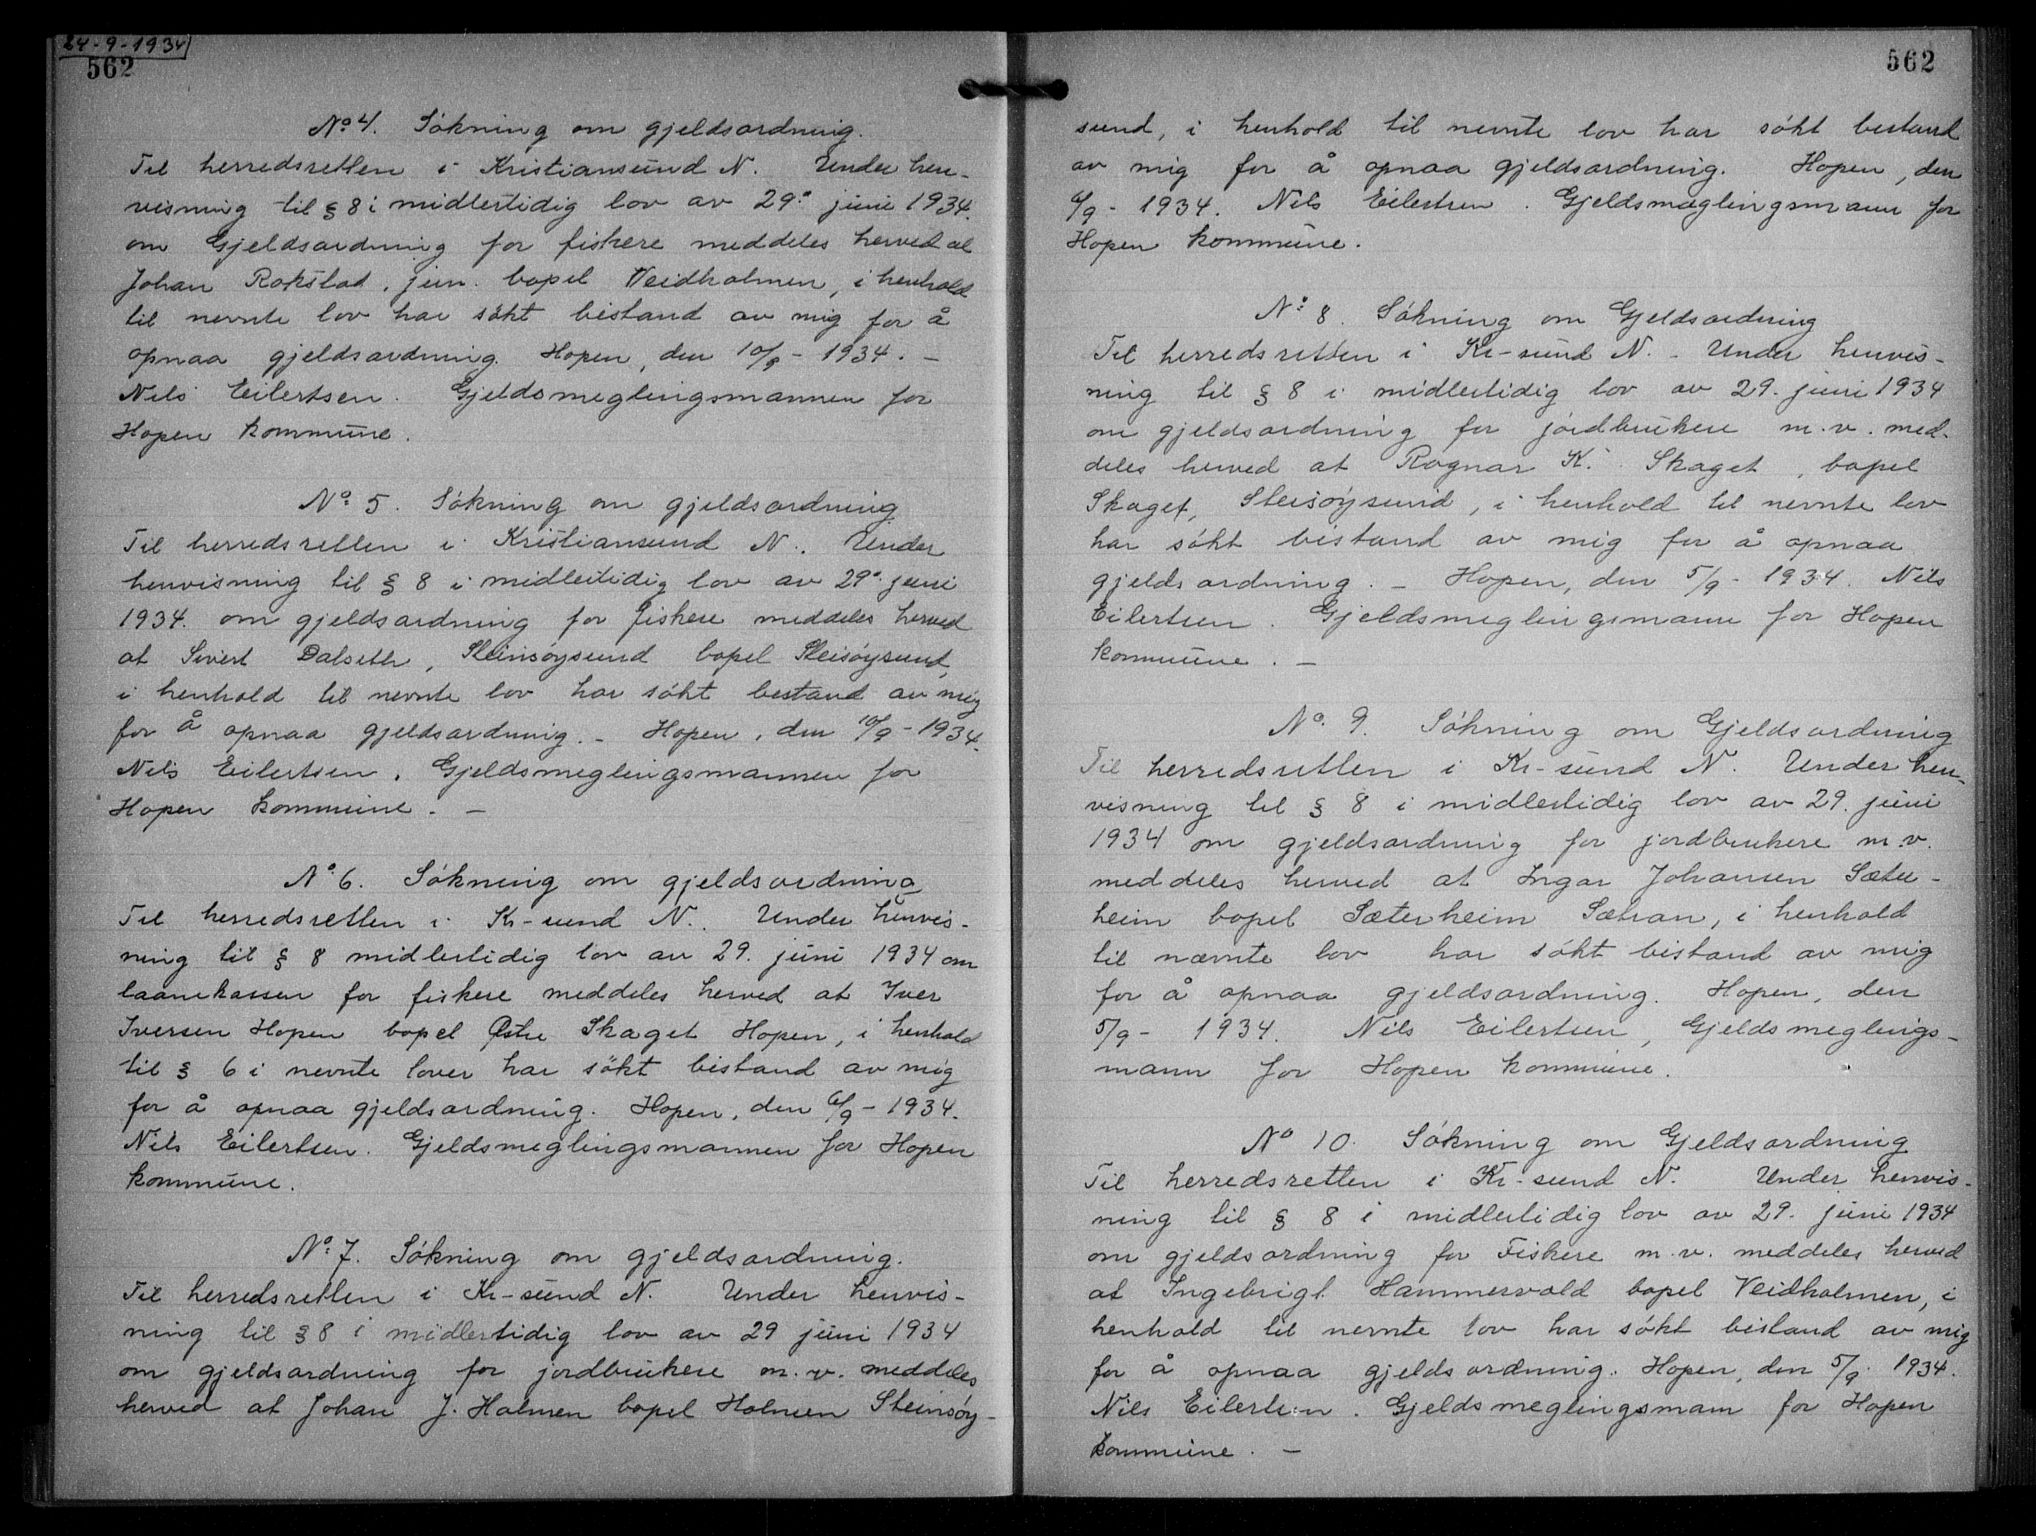 24-9-1934
562
No 4. Søkning om gjeldsordning.
Til herredsretten i Kristiansund N. Under hen-
visning til § 8 i midlertidig lov av 29. juni 1934.
om Gjeldsordning for fiskere meddeles herved at
Johan Rokstad, jun. bopel Veidholmen, i henhold
til nevnte lov har søkt bistand av mig for å
opnaa gjeldsordning. Hopen, den 10/9 - 1934. -
Nils Eilertsen. Gjeldsmeglingsmannen for
Hopen kommune.
No 5. Søkning om gjeldsordning
Til herredsretten i Kristiansund N. Under
henvisning til § 8 i midlertidig lov av 29. juni
1934. om gjeldsordning for fiskere meddeles herved
at Sivert Dalseth, Steinsøysund bopel Steisøysund,
i henhold til nevnte lov har søkt bestand av mig
for å opnaa gjeldsordning. - Hopen, den 10/9 - 1934.
Nils Eilertsen. Gjeldsmeglingsmannen for
Hopen kommune. -
No 6. Søkning om gjeldsordning
Til herredsretten i Kr-sund N. Under henvis-
ning til § 8 midlertidig lov av 29. juni 1934 om
laanekassen for fiskere meddeles herved at Iver
Iversen Hopen bopel Østre Skaget Hopen, i henhold
til § 6 i nevnte lover har søkt bistand av mig
for å opnaa gjeldsordning. Hopen, den 6/9 - 1934.
Nils Eilertsen. Gjeldsmeglingsmannen for Hopen
kommune.
No 7. Søkning om gjeldsordning.
Til herredsretten i Kr-sund N. Under henvis-
ning til § 8 i midlertidig lov av 29 juni 1934
om gjeldsordning for jordbrukere m. v. meddeles
herved at Johan J. Holmen bopel Holmen Steinsøy-
562
sund, i henhold til nevnte lov har søkt bestand
av mig for å opnaa gjeldsordning. Hopen, den
6/9 - 1934. Nils Eilertsen. Gjeldsmæglingsmann for
Hopen kommune.
No 8. Søkning om Gjeldsordning
Til herredsretten i Kr-sund N. - Under henvis-
ning til § 8 i midlertidig lov av 29. juni 1934
om gjeldsordning for jordbrukere m. v. med-
deles herved at Ragnar K. Skaget, bopel
Skaget, Steisøysund, i henhold til nevnte lov
har søkt bistand av mig for å opnaa
gjeldsordning. - Hopen, den 5/9 - 1934. Nils
Eilertsen. Gjeldsmeglingsmann for Hopen
kommune. -
No. 9. Søkning om Gjeldsordning
Til herredsretten i Kr-sund N. Under hen-
visning til § 8 i midlertidig lov av 29. juni
1934 om gjeldsordning for jordbrukere m. v.
meddeles herved at Ingar Johansen Sæter-
heim bopel Sæterheim Sætran, i henhold
til nævnte lov har søkt bistand av mig
for å opnaa gjeldsordning. Hopen, den
5/9 - 1934. Nils Eilertsen, Gjeldsmeglings-
mann for Hopen kommune.
No 10. Søkning om Gjeldsordning
Til herredsretten i Kr-sund N. Under henvis-
ning til § 8 i midlertidig lov av 29. juni 1934
om gjeldsordning for Fiskere m. v. meddeles herved
at Ingebrigt Hammervold bopel Veidholmen, i
henhold til nevnte lov har søkt bistand av mig
for å opnaa gjeldsordning. Hopen, den 5/9. 1934.
Nils Eilertsen. Gjeldsmeglingsmann for Hopen
kommune. -